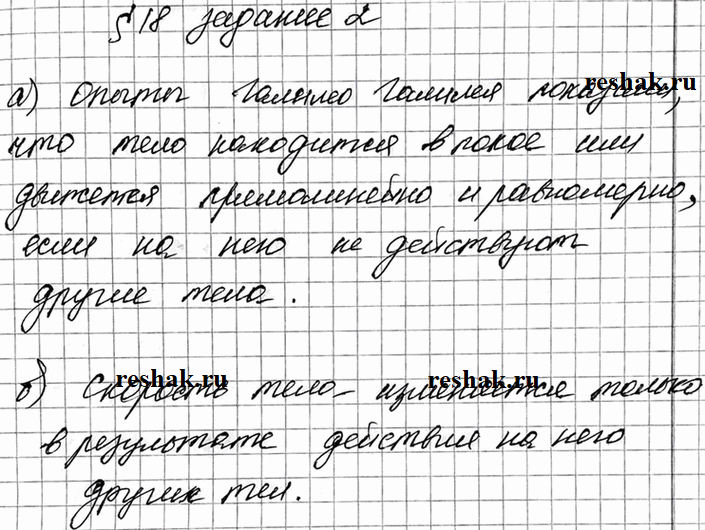 § 18 задание 2
а) Опыты Галилео Галилея показали,
что тело находится в покое или
движется прямолинейно и равномерно,
если на него не действуют
другие тела.
б) Скорость тела изменяется только
в результате действия на него
других тел.
reshak.ru
reshak.ru
reshak.ru